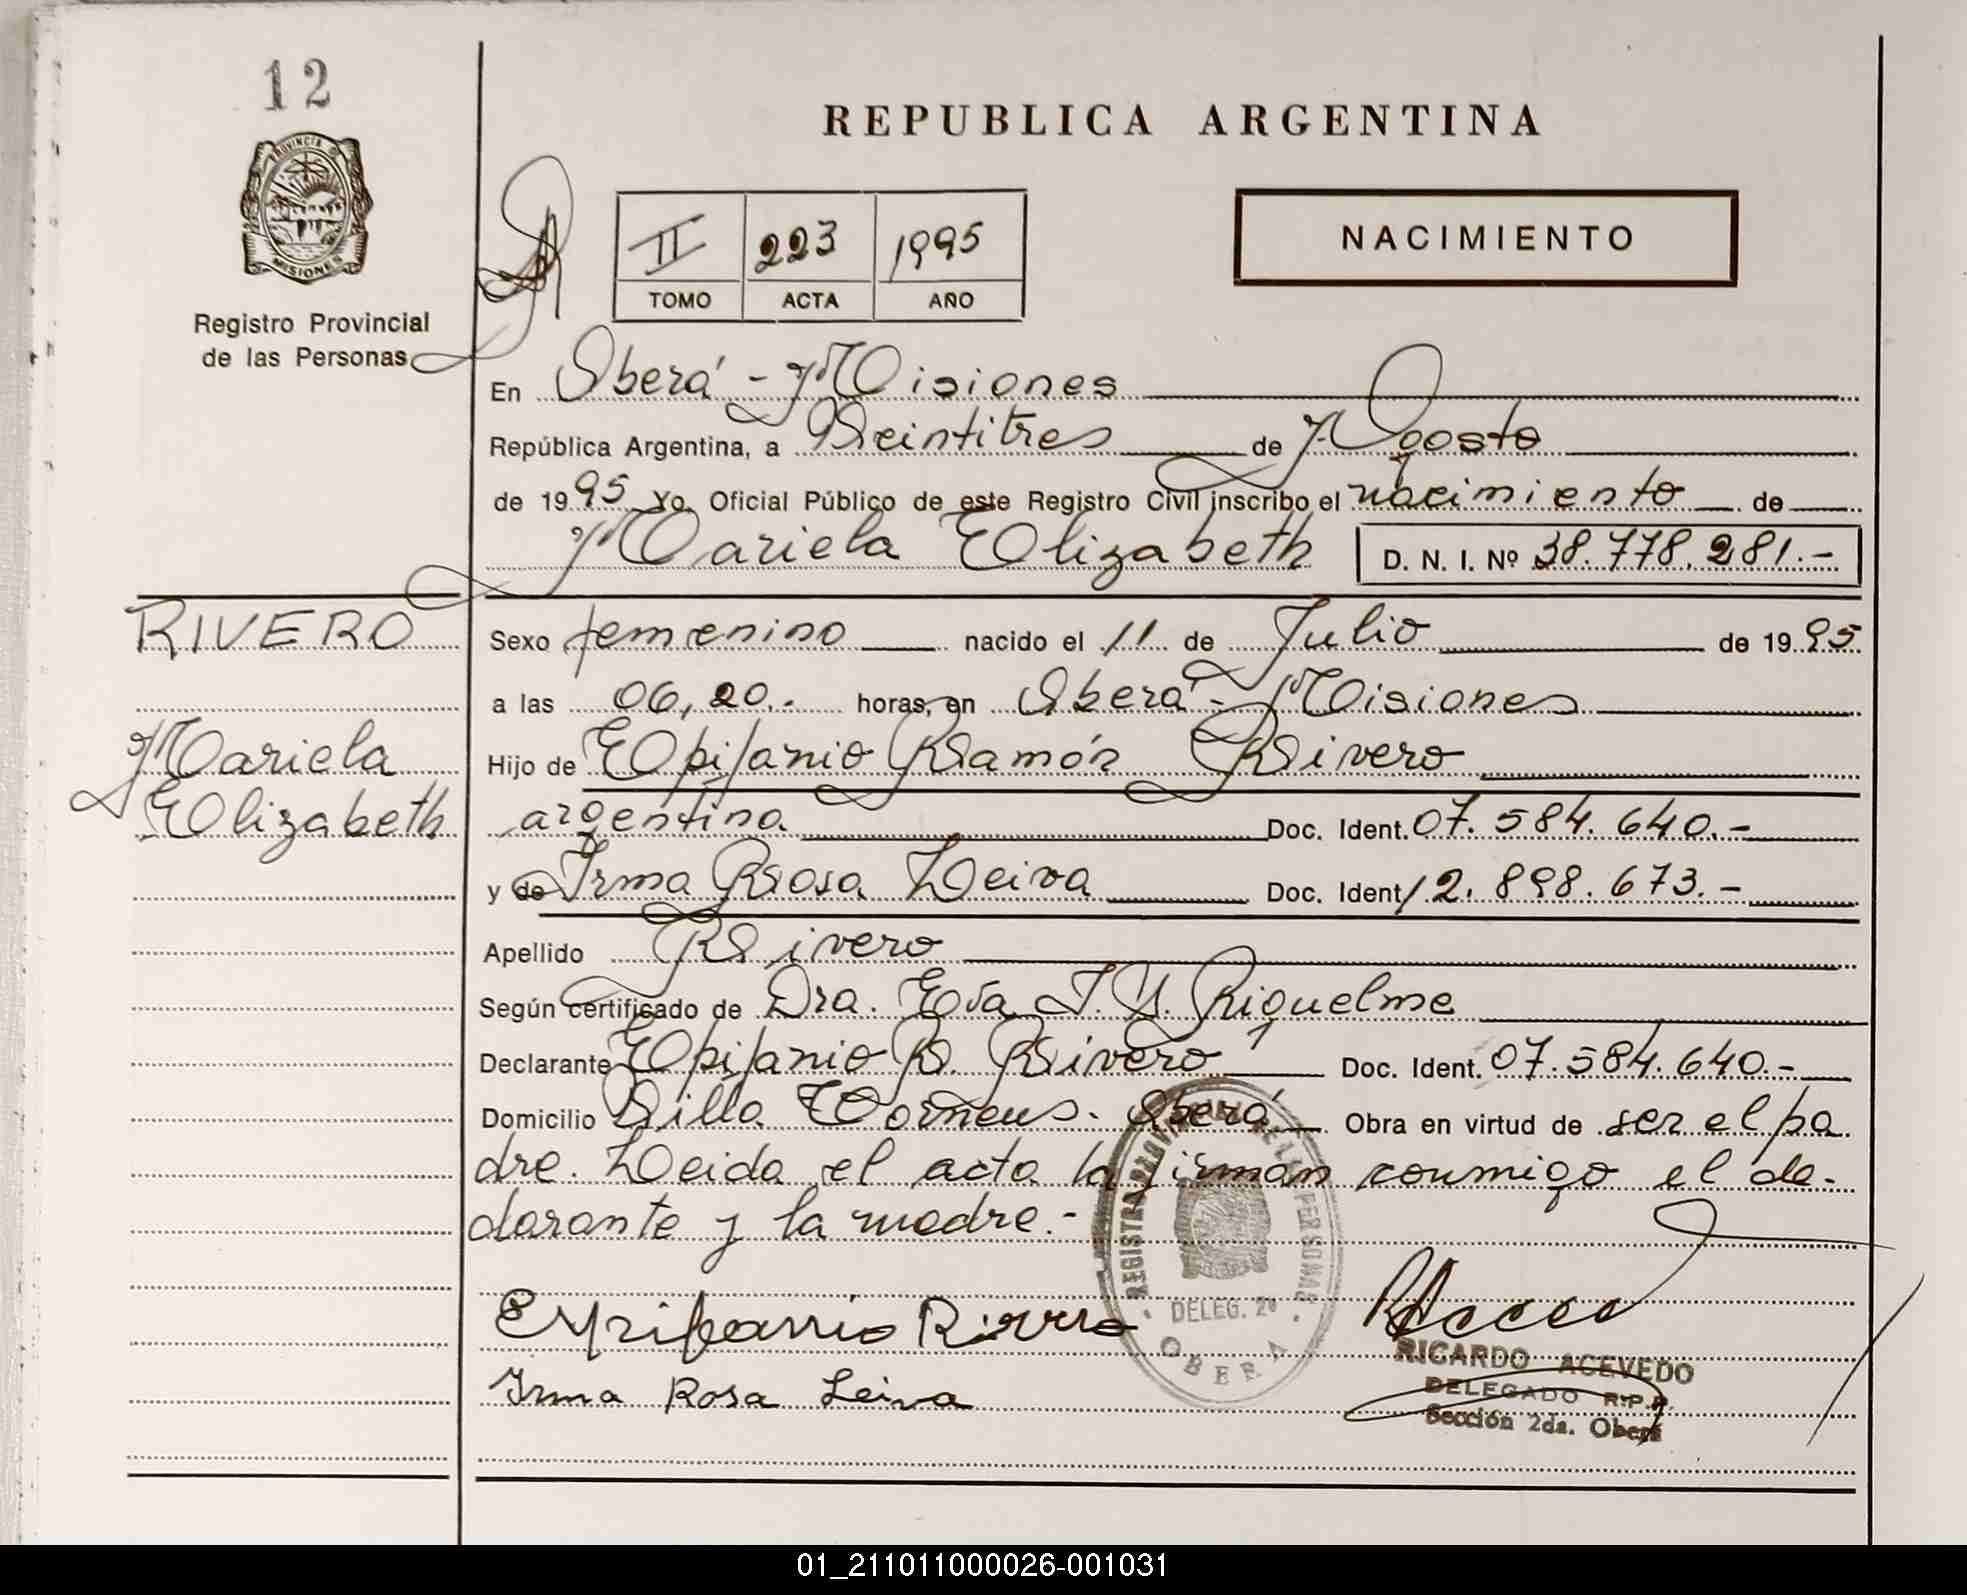 12
REPUBLICA ARGENTINA
PROVINCIA D
MISIONES
Registro Provincial
de las Personas
II 223 1995
TOMO ACTA AÑO
NACIMIENTO
En Oberá - Misiones
República Argentina, a Veintitres de Agosto
de 1995 Yo, Oficial Público de este Registro Civil inscribo el nacimiento de
Mariela Elizabeth D. N. I. Nº 38.778.281.-
RIVERO
Mariela
Elizabeth
Sexo femenino nacido el 11 de Julio de 1995
a las 06,20.- horas, en Oberá - Misiones
Hijo de Epifanio Ramón Rivero
argentina Doc. Ident. 07.584.640.-
y de Irma Rosa Leiva Doc. Ident 12.898.673.-
Apellido Rivero
Según certificado de Dra. Eva Riquelme
Declarante Epifanio R. Rivero Doc. Ident. 07.584.640.-
Domicilio Villa Oberá Obra en virtud de ser el pa
dre. Leida el acta la firman conmigo el de-
clarante y la madre.-
REGISTRO PROVINCIAL DE LAS PERSONAS
DELEG. 2ª
OBERA
Epifanio Rivero
Irma Rosa Leiva
RICARDO ACEVEDO
DELEGADO R.P.P.
Sección 2da. Oberá
01_211011000026-001031